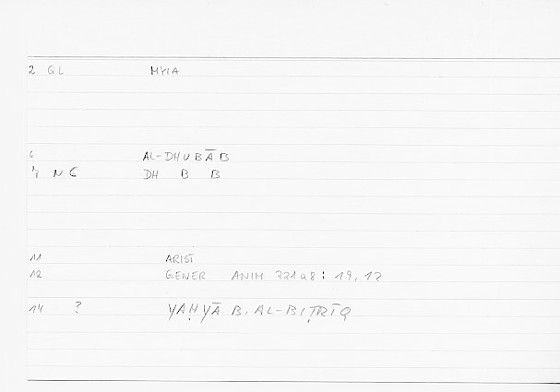 2 QL MYIA
6 AL-DHUBĀB
7 N C DH B B
11 ARIST
12 GENER ANIM 721a8: 19,17
14 ? YAḤYĀ B. AL-BIṬRĪQ